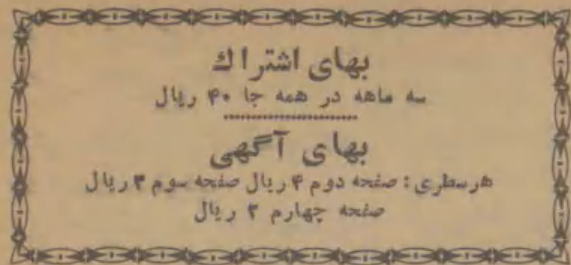 بهای اشتراك
سه ماهه در همه جا ۴۰ ریال
بهای آگهی
هرسطری : صفحه دوم ۴ ریال صفحه سوم ۳ ریال
صفحه چهارم ۲ ریال